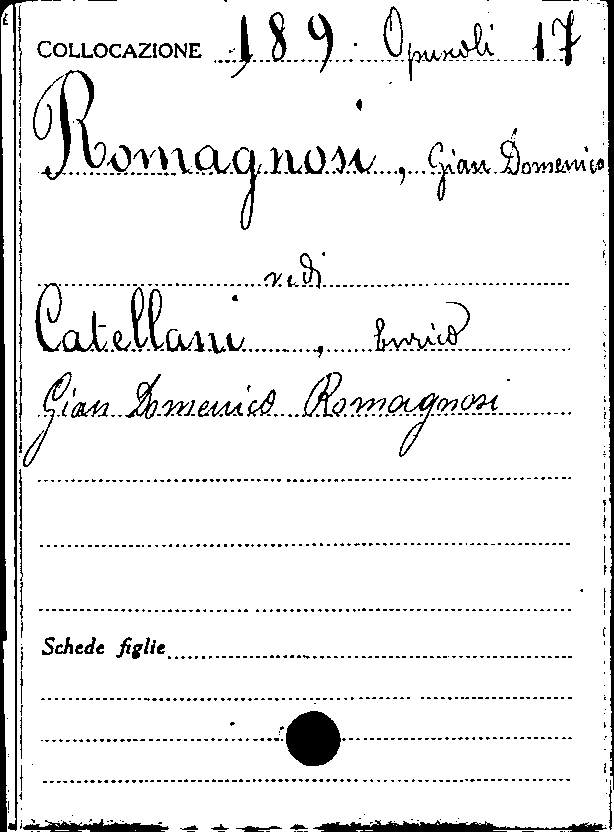 COLLOCAZIONE 189. Opuscoli 17
Romagnosi, Gian Domenico
vedi
Catellani, Enrico
Gian Domenico Romagnosi
Schede figlie